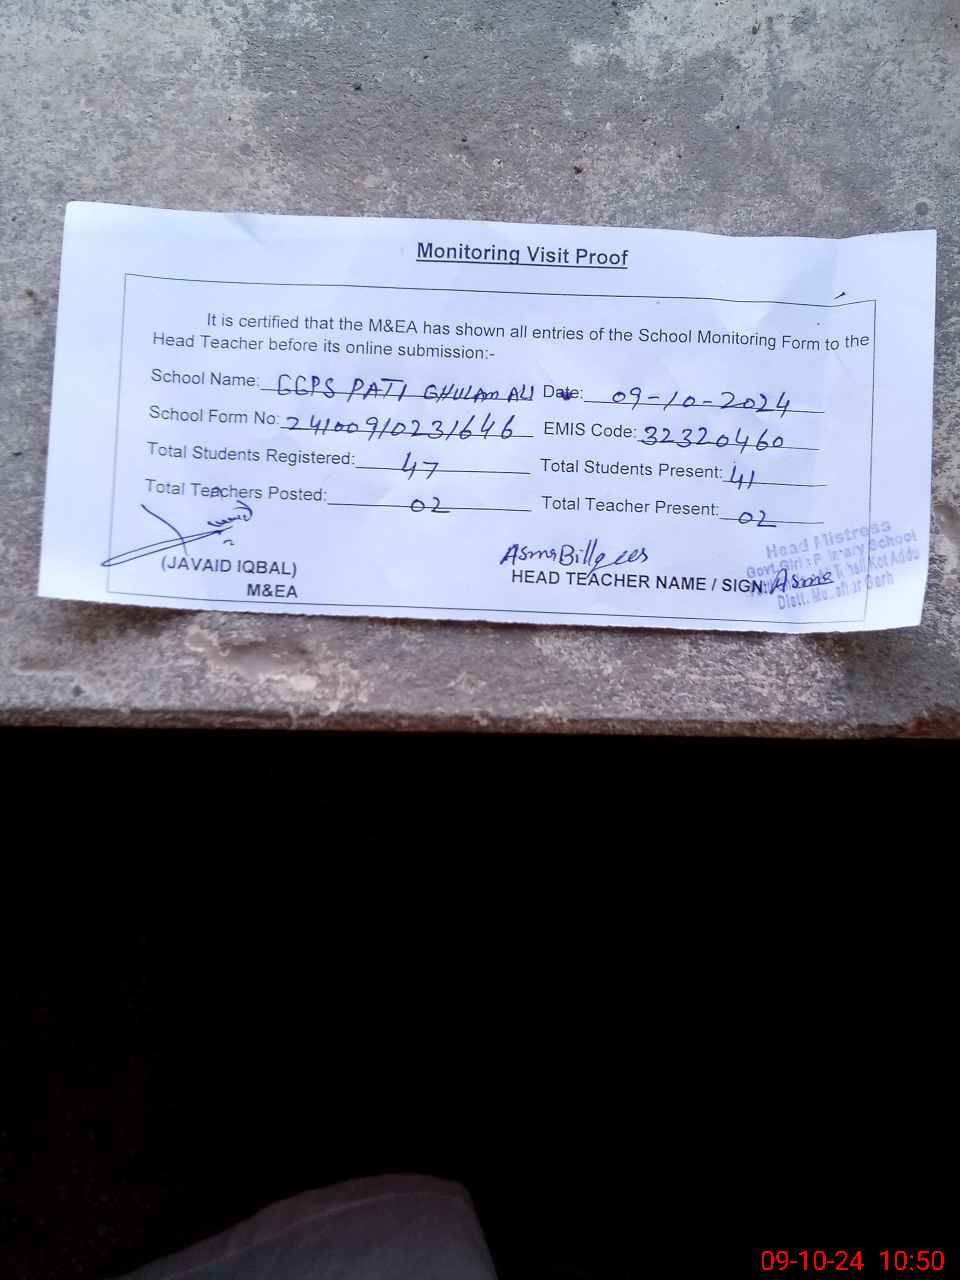 Monitoring Visit Proof
It is certified that the M&EA has shown all entries of the School Monitoring Form to the
Head Teacher before its online submission:-
School Name: GGPS PATI GHULAM ALI Date: 09-10-2024
School Form No: 24100910231646 EMIS Code: 32320460
Total Students Registered: 47 Total Students Present: 41
Total Teachers Posted: 02 Total Teacher Present: 02
(JAVAID IQBAL)
M&EA
Asma Billqees
HEAD TEACHER NAME / SIGN: Asma
Head Mistress
Govt. Girls Primary School
Kot Addu
Distt. Garh
09-10-24 10:50